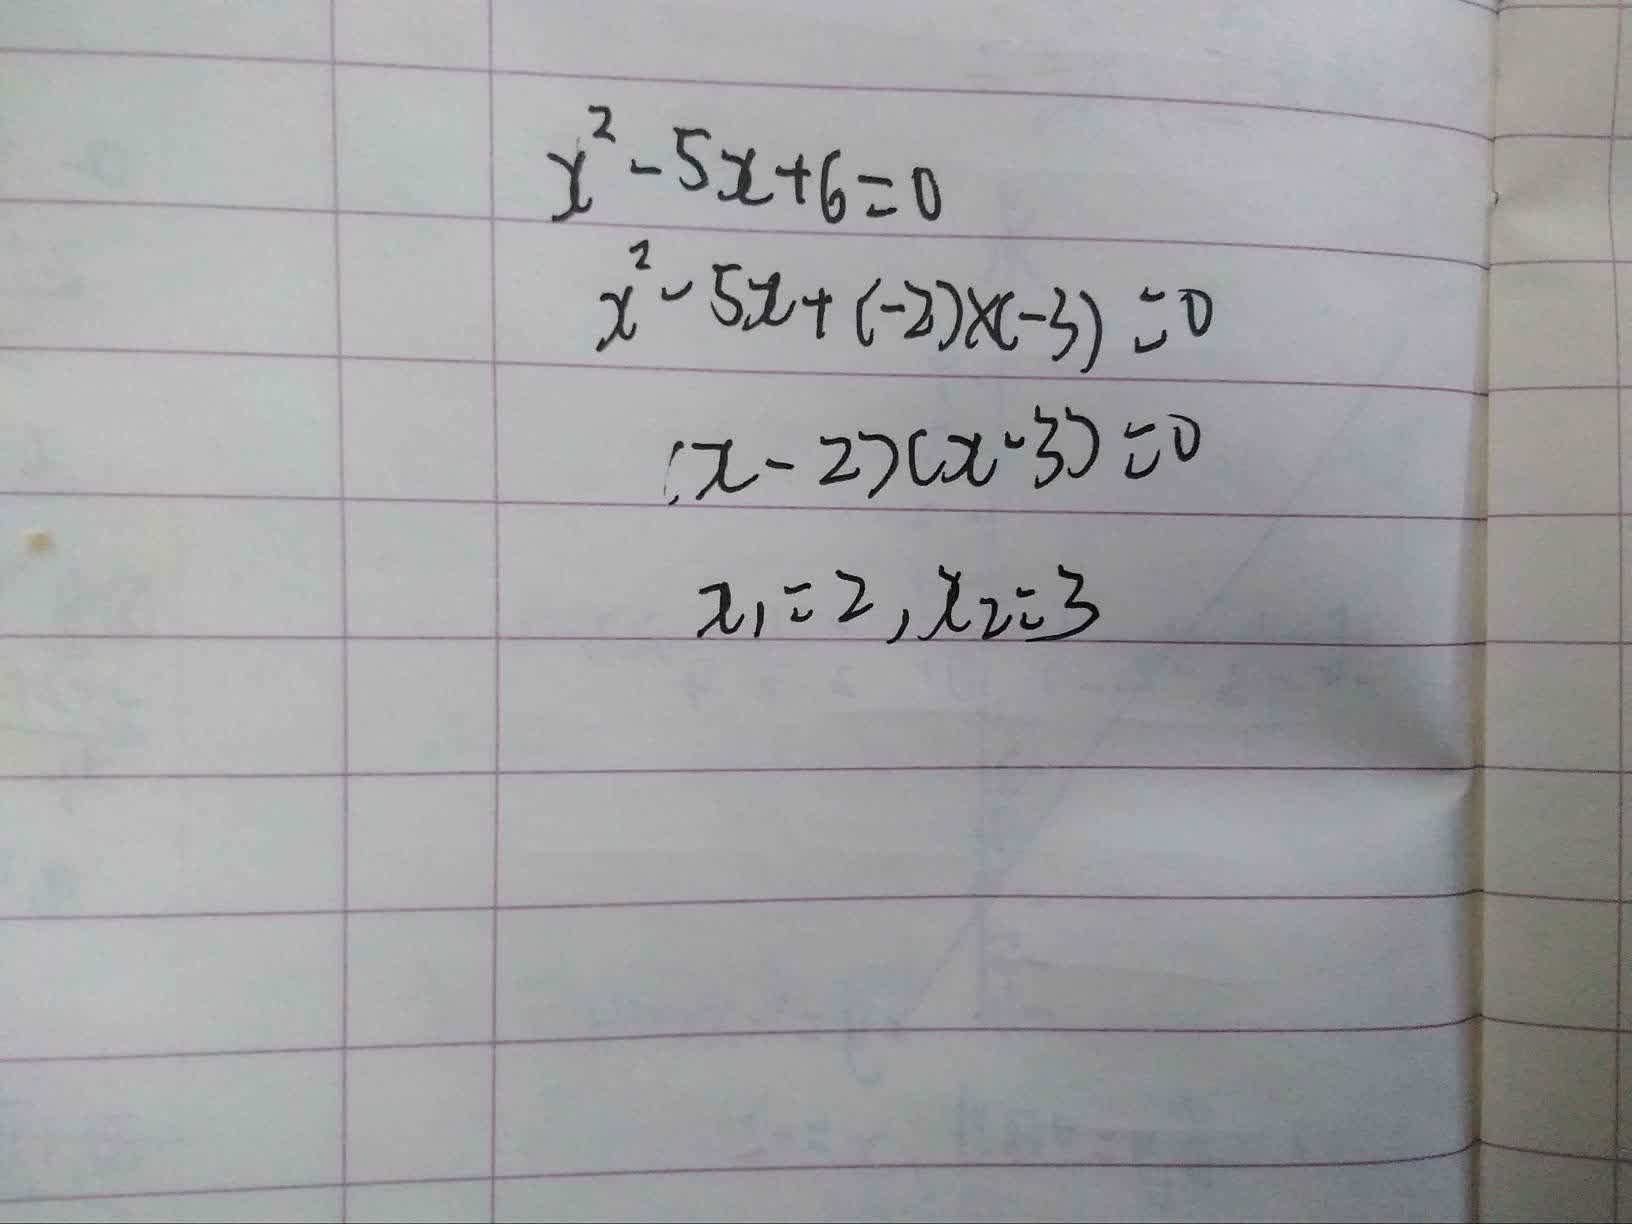 x²-5x+6=0
x²-5x+(-2)×(-3)=0
(x-2)(x-3)=0
x₁=2, x₂=3